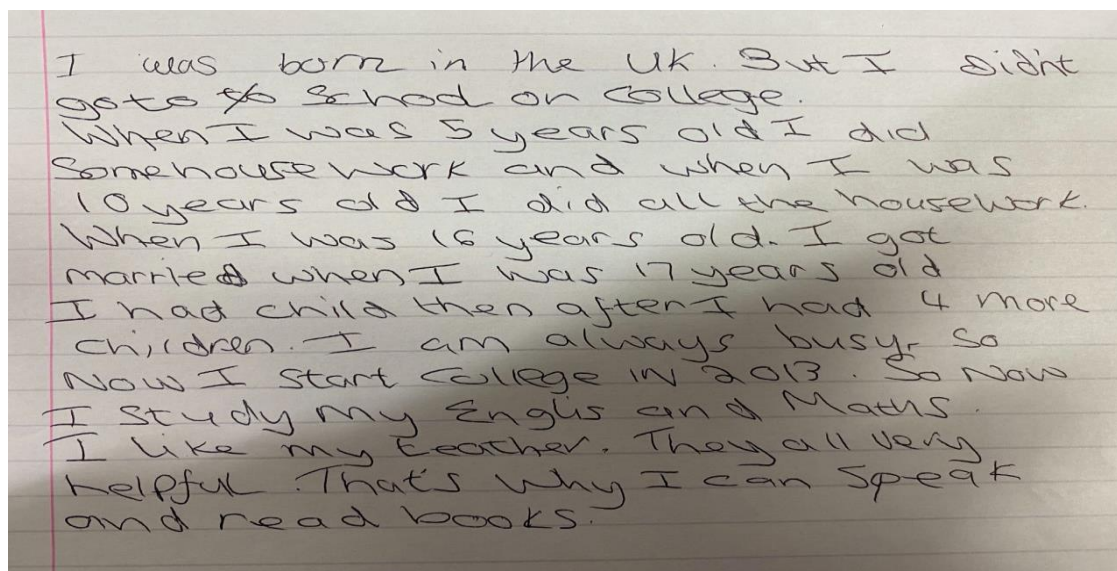 I was born in the UK. But I didn't
go to to School or College.
When I was 5 years old I did
Some house work and when I was
10 years old I did all the housework.
When I was 16 years old. I got
married when I was 17 years old
I had child then after I had 4 more
children. I am always busy. So
Now I start College in 2013. So Now
I study my Englis and Maths.
I like my teacher. They all very
helpful. That's why I can speak
and read books.